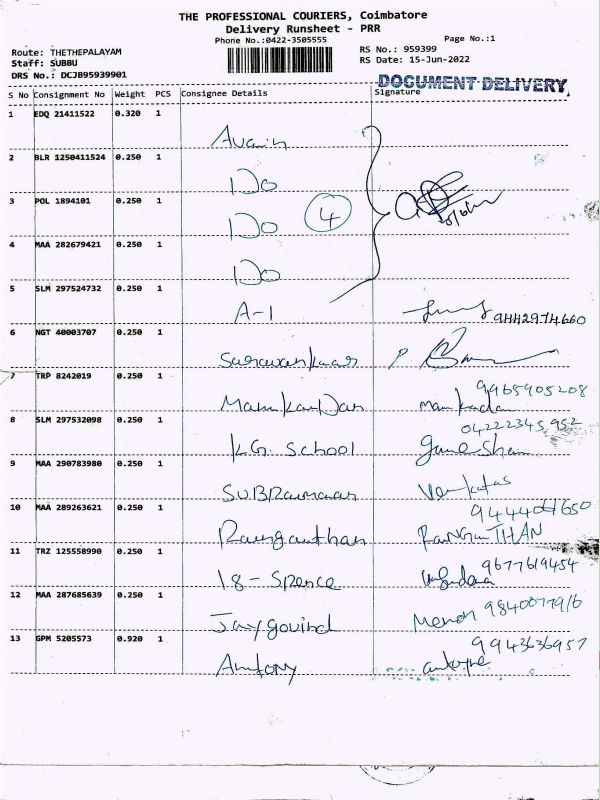 THE PROFESSIONAL COURIERS, Coimbatore
Delivery Runsheet - PRR
Phone No.:0422-3505555
Page No.:1
Route: THETHEPALAYAM
RS No.: 959399
Staff: SUBBU
RS Date: 15-Jun-2022
DRS No.: DCJB95939901
DOCUMENT DELIVERY
S No Consignment No Weight PCS Consignee Details Signature
1 EDQ 21411522 0.320 1
2 BLR 1250411524 0.250 1 Do
3 POL 1894101 0.250 1 Do 4
4 MAA 282679421 0.250 1 Do
5 SLM 297524732 0.250 1 A-1 9442974660
6 NGT 40003707 0.250 1
7 TRP 8242019 0.250 1 9965905208
8 SLM 297532098 0.250 1 K.G. School 04222345952
9 MAA 290783980 0.250 1
10 MAA 289263621 0.250 1
11 TRZ 125558990 0.250 1 18-Spence 9677619454
12 MAA 287685639 0.250 1 Jaygovind Menon
13 GPM 5205573 0.920 1 Antony 9943636957